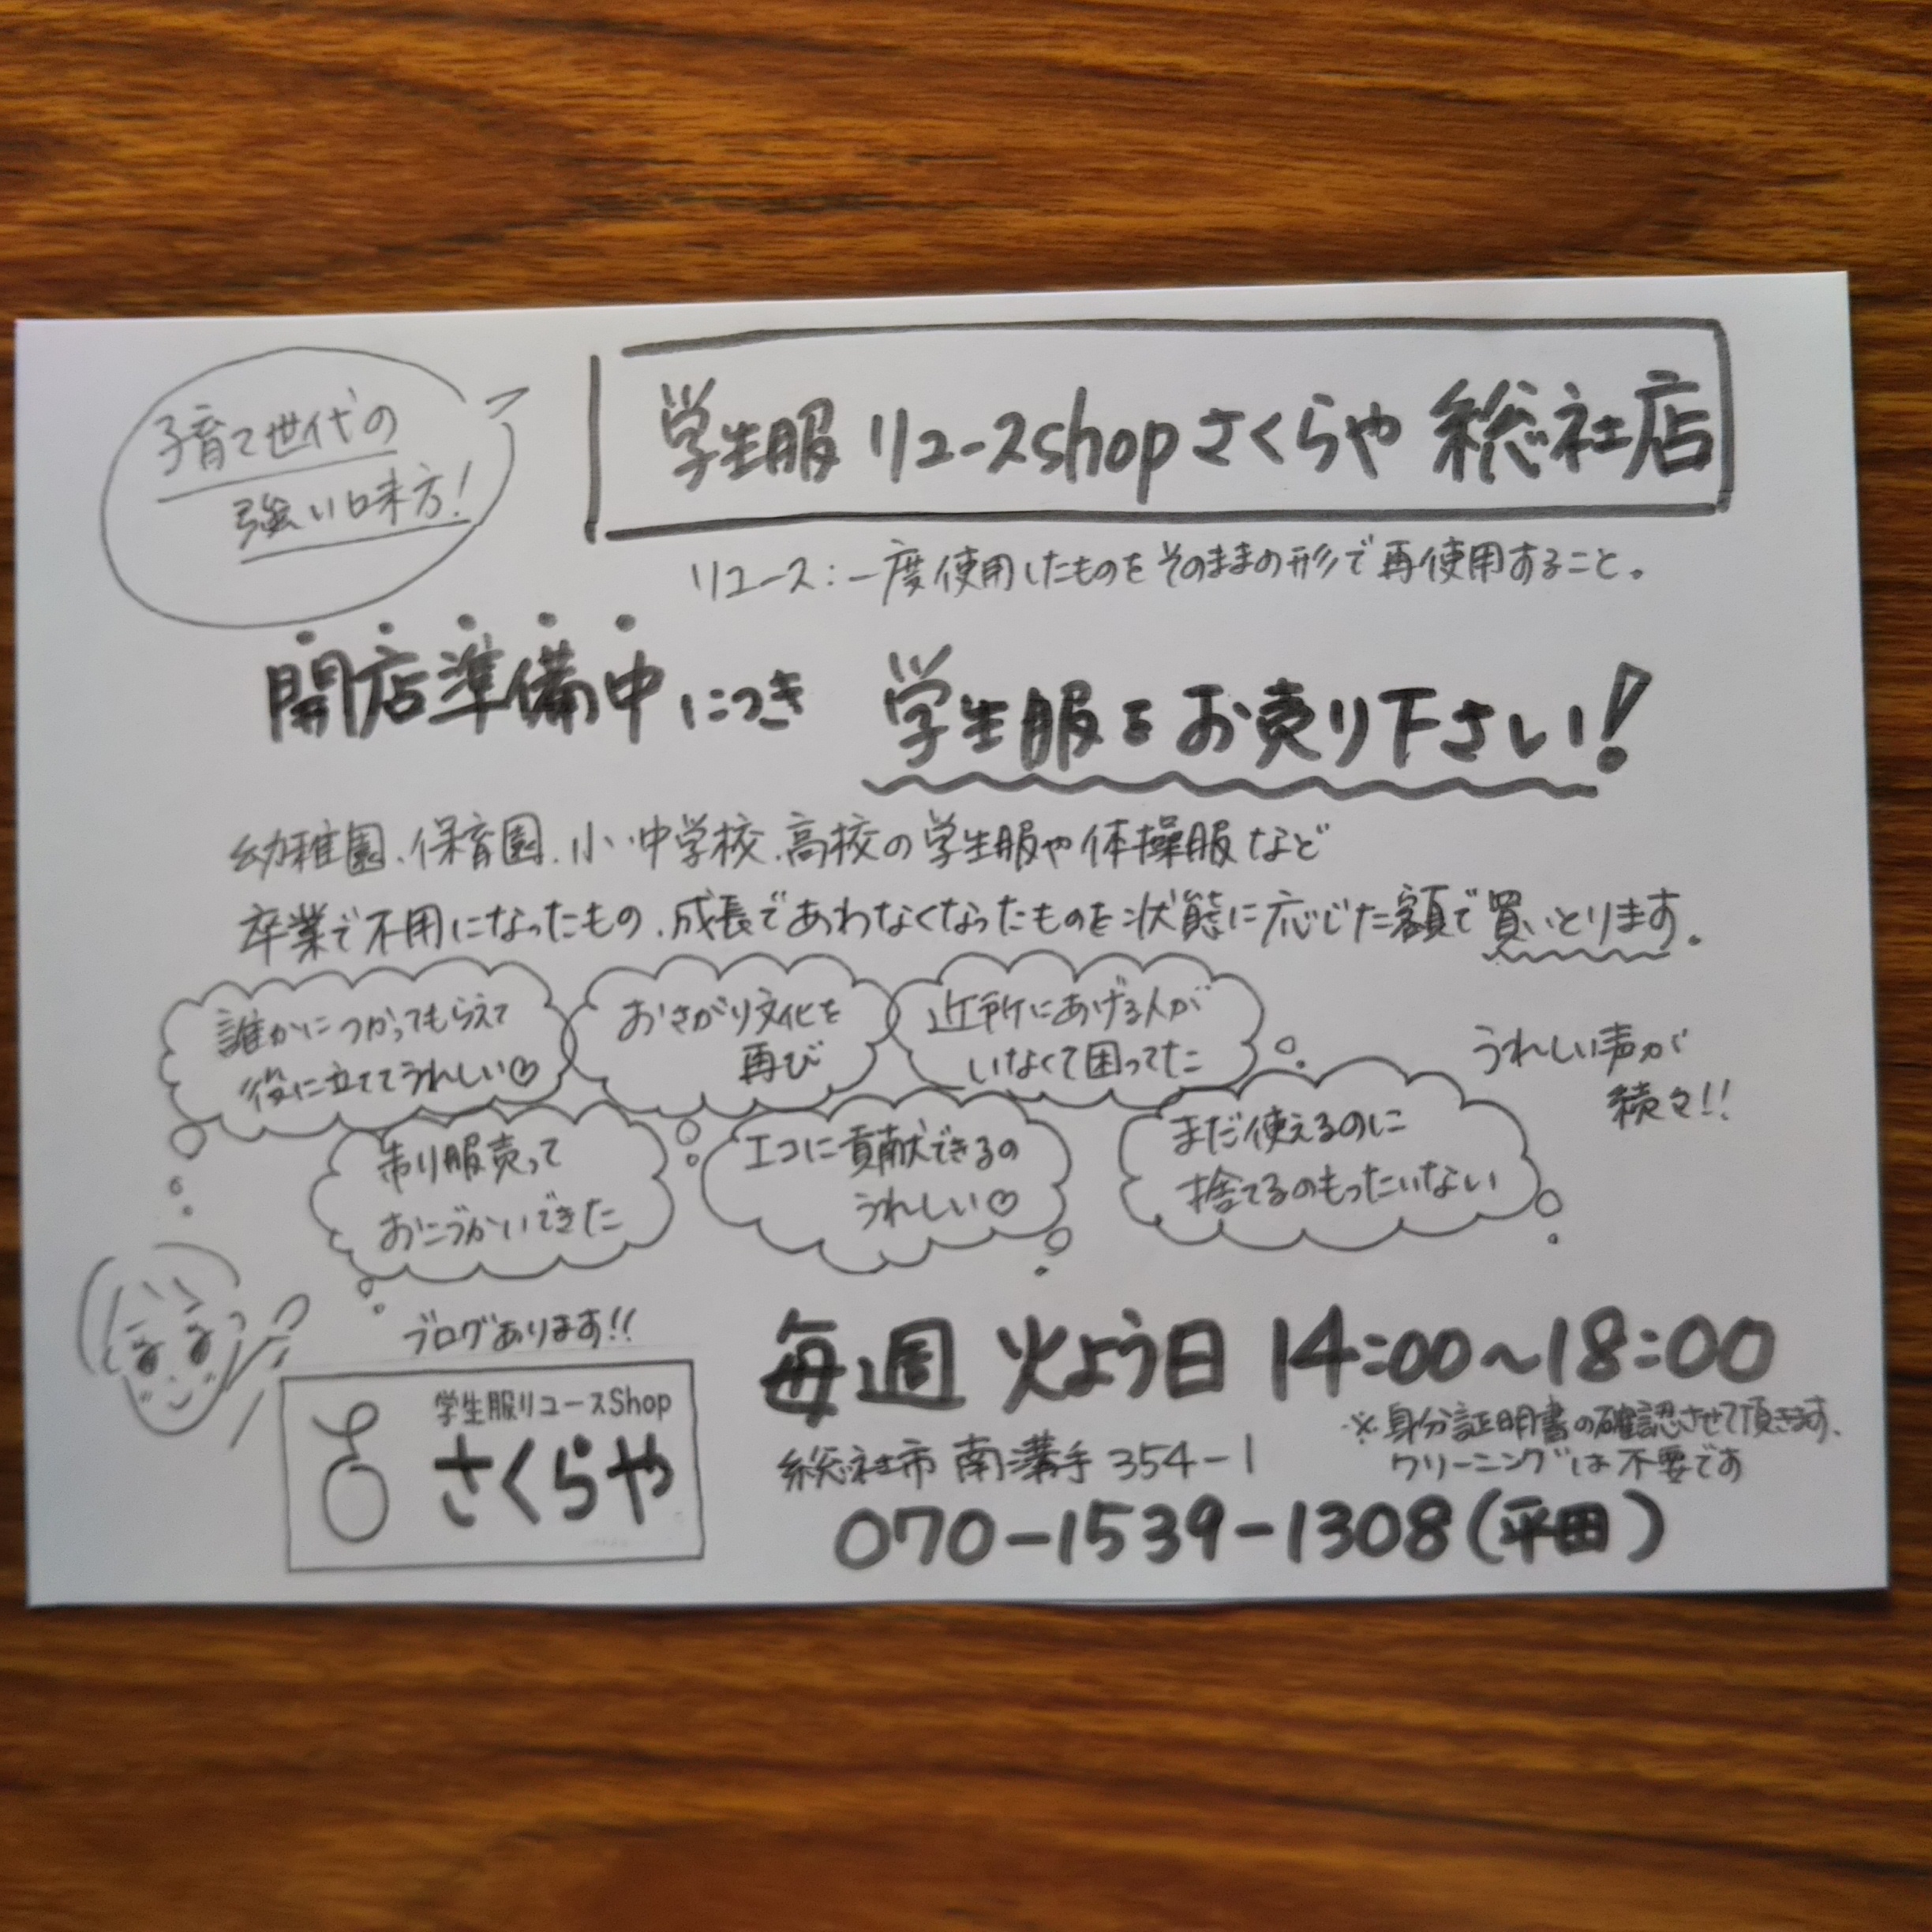 子育て世代の
強い味方!
学生服リユースshopさくらや 総社店
リユース:一度使用したものをそのままの形で再使用すること。
開店準備中につき 学生服をお売り下さい!
幼稚園、保育園、小・中学校、高校の学生服や体操服など
卒業で不用になったもの、成長であわなくなったものを状態に応じた額で買いとります。
誰かにつかってもらえて
役に立ててうれしい♡
おさがり文化を
再び
近所にあげる人が
いなくて困ってた
うれしい声が
続々!!
制服売って
おこづかいできた
エコに貢献できるの
うれしい♡
まだ使えるのに
捨てるのもったいない
ブログあります!!
学生服リユースShop
さくらや
毎週 火よう日 14:00~18:00
※身分証明書の確認させて頂きます、
クリーニングは不要です
総社市南溝手354-1
070-1539-1308(平田)